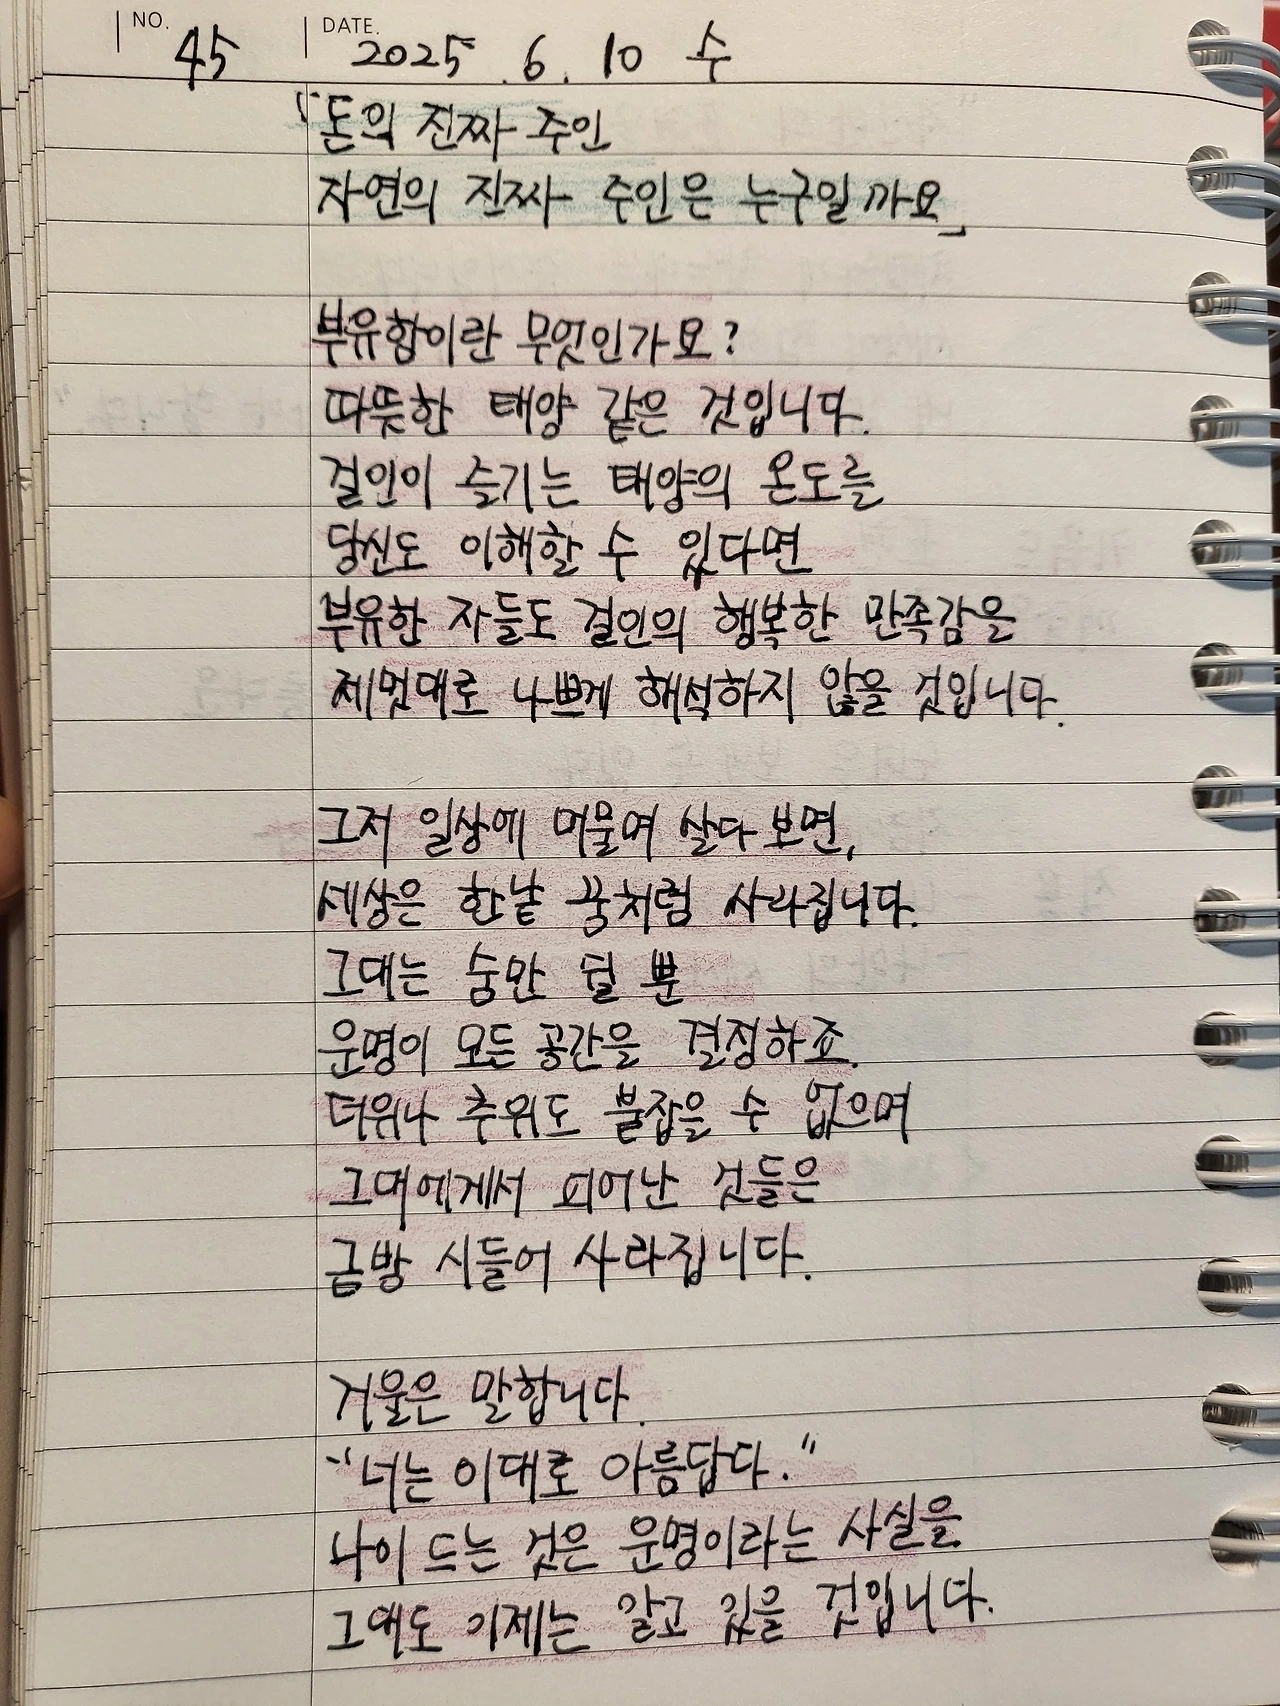 NO. 45 DATE. 2025. 6. 10 수
"돈의 진짜 주인
자연의 진짜 주인은 누구일까요」
부유함이란 무엇인가요?
따뜻한 태양 같은 것입니다.
걸인이 즐기는 태양의 온도를
당신도 이해할 수 있다면
부유한 자들도 걸인의 행복한 만족감을
제멋대로 나쁘게 해석하지 않을 것입니다.
그저 일상에 머물며 살다보면,
세상은 한낱 꿈처럼 사라집니다.
그대는 숨만 쉴 뿐
운명이 모든 공간을 결정하죠.
더위나 추위도 붙잡을 수 없으며
그대에게서 피어난 것들은
금방 시들어 사라집니다.
거울은 말합니다.
"너는 이대로 아름답다."
나이 드는 것은 운명이라는 사실을
그대도 이제는 알고 있을 것입니다.